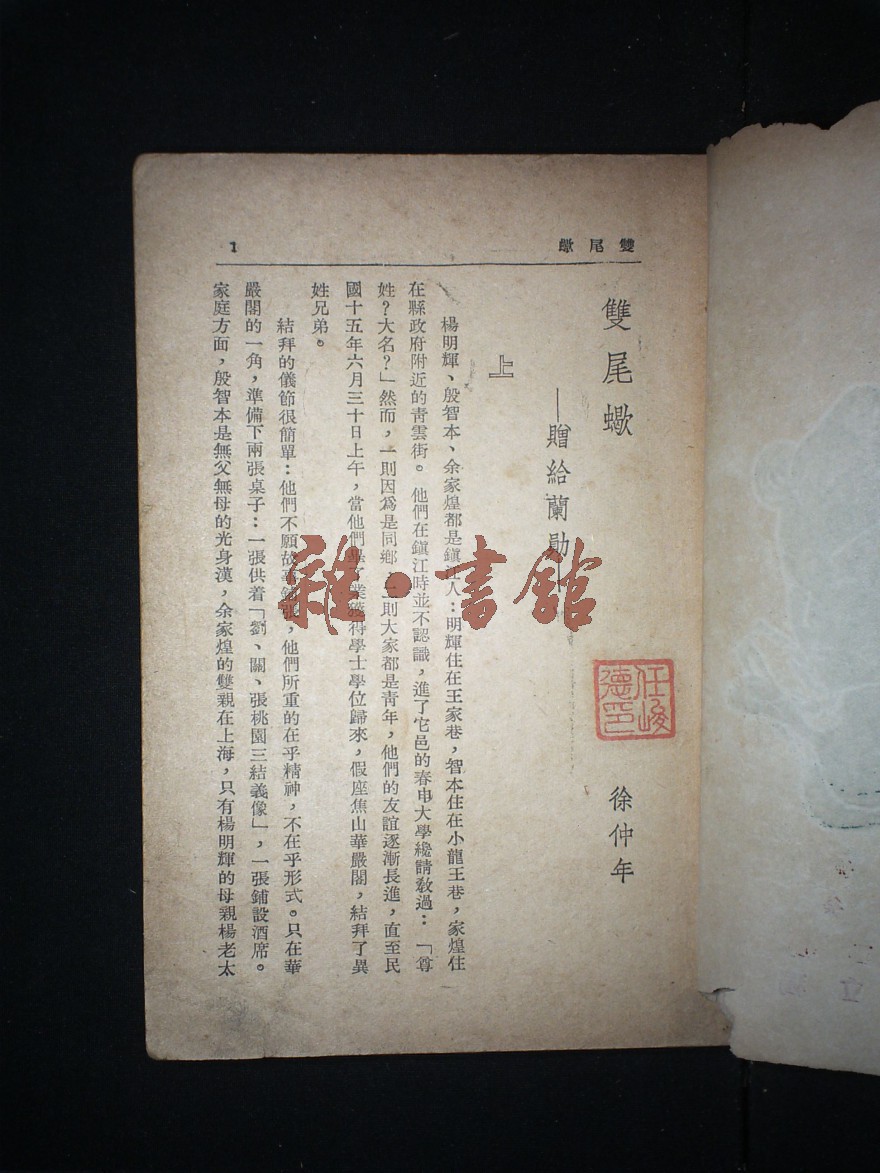 雙尾蠍
1
雙尾蠍
——贈給蘭勛
徐仲年
任峻
德印
上
楊明輝、殷智本、余家煌都是鎮江人：明輝住在王家巷，智本住在小龍王巷，家煌住
在縣政府附近的青雲街。他們在鎮江時並不認識，進了它邑的春申大學纔請敎過：「尊
姓？大名？」然而，一則因爲是同鄉，二則大家都是靑年，他們的友誼逐漸長進，直至民
國十五年六月三十日上午，當他們學業獲得學士學位歸來，假座焦山華嚴閣，結拜了異
姓兄弟。
結拜的儀節很簡單：他們不願故事鋪張，他們所重的在乎精神，不在乎形式。只在華
嚴閣的一角，準備下兩張桌子：一張供着「劉、關、張桃園三結義像」，一張鋪設酒席。
家庭方面，殷智本是無父無母的光身漢，余家煌的雙親在上海，只有楊明輝的母親楊老太
雜·書館